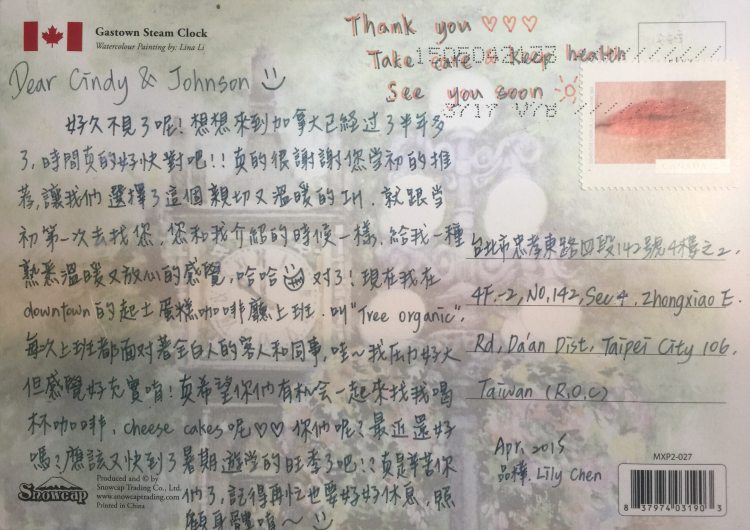 Gastown Steam Clock
Watercolour Painting by: Lina Li
Thank you ♡♡♡
Take care & keep health
See you soon
Dear Cindy & Johnson
好久不見了呢!想想來到加拿大已經过了半年多
了,時間真的好快對吧!!真的很謝謝您當初的推
荐,讓我們選擇了這個親切又溫暖的IH.就跟當
初第一次去找您,您和我介紹的時候一樣,給我一種
熟悉溫暖又放心的感覺,哈哈 对了!現在我在
downtown的起士蛋糕咖啡廳上班.叫"Tree organic".
每次上班都面對著全白人的客人和同事,哇~我压力好大
但感覺好充實唷!真希望你們有机会一起來找我喝
杯咖啡、cheese cakes呢♡♡ 你們呢?最近還好
嗎?應該又快到了暑期遊学的旺季了吧!?真是辛苦你
們了,記得再忙也要好好休息,照
顧身體唷~
台北市忠孝東路四段142號4樓之2.
4F.-2, No.142, Sec 4, Zhongxiao E.
Rd, Da'an Dist, Taipei City 106.
Taiwan (R.O.C)
Apr. 2015
品樺. Lily Chen
MXP2-027
8 37974 03190 3
Snowcap
Produced and © by
Snowcap Trading Co., Ltd.
www.snowcaptrading.com
Printed in China